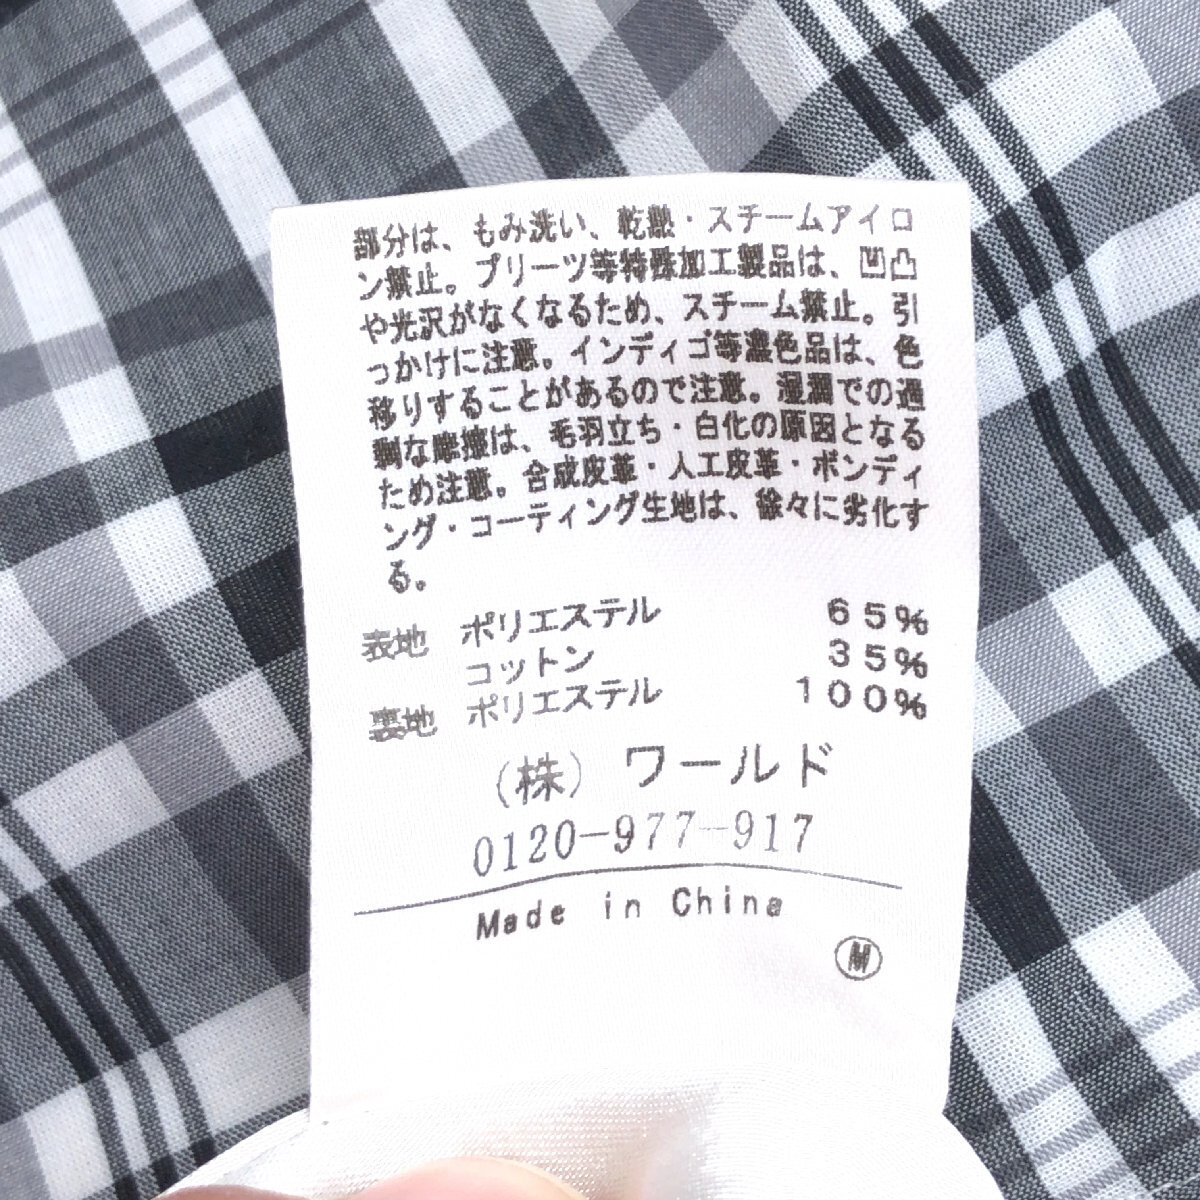 部分は、もみ洗い、乾熱・スチームアイロ
ン禁止。プリーツ等特殊加工製品は、凹凸
や光沢がなくなるため、スチーム禁止。引
っかけに注意。インディゴ等濃色品は、色
移りすることがあるので注意。湿潤での過
剰な摩擦は、毛羽立ち・白化の原因となる
ため注意。合成皮革・人工皮革・ボンディ
ング・コーティング生地は、徐々に劣化す
る。
表地 ポリエステル 65%
コットン 35%
裏地 ポリエステル 100%
(株) ワールド
0120-977-917
Made in China
M